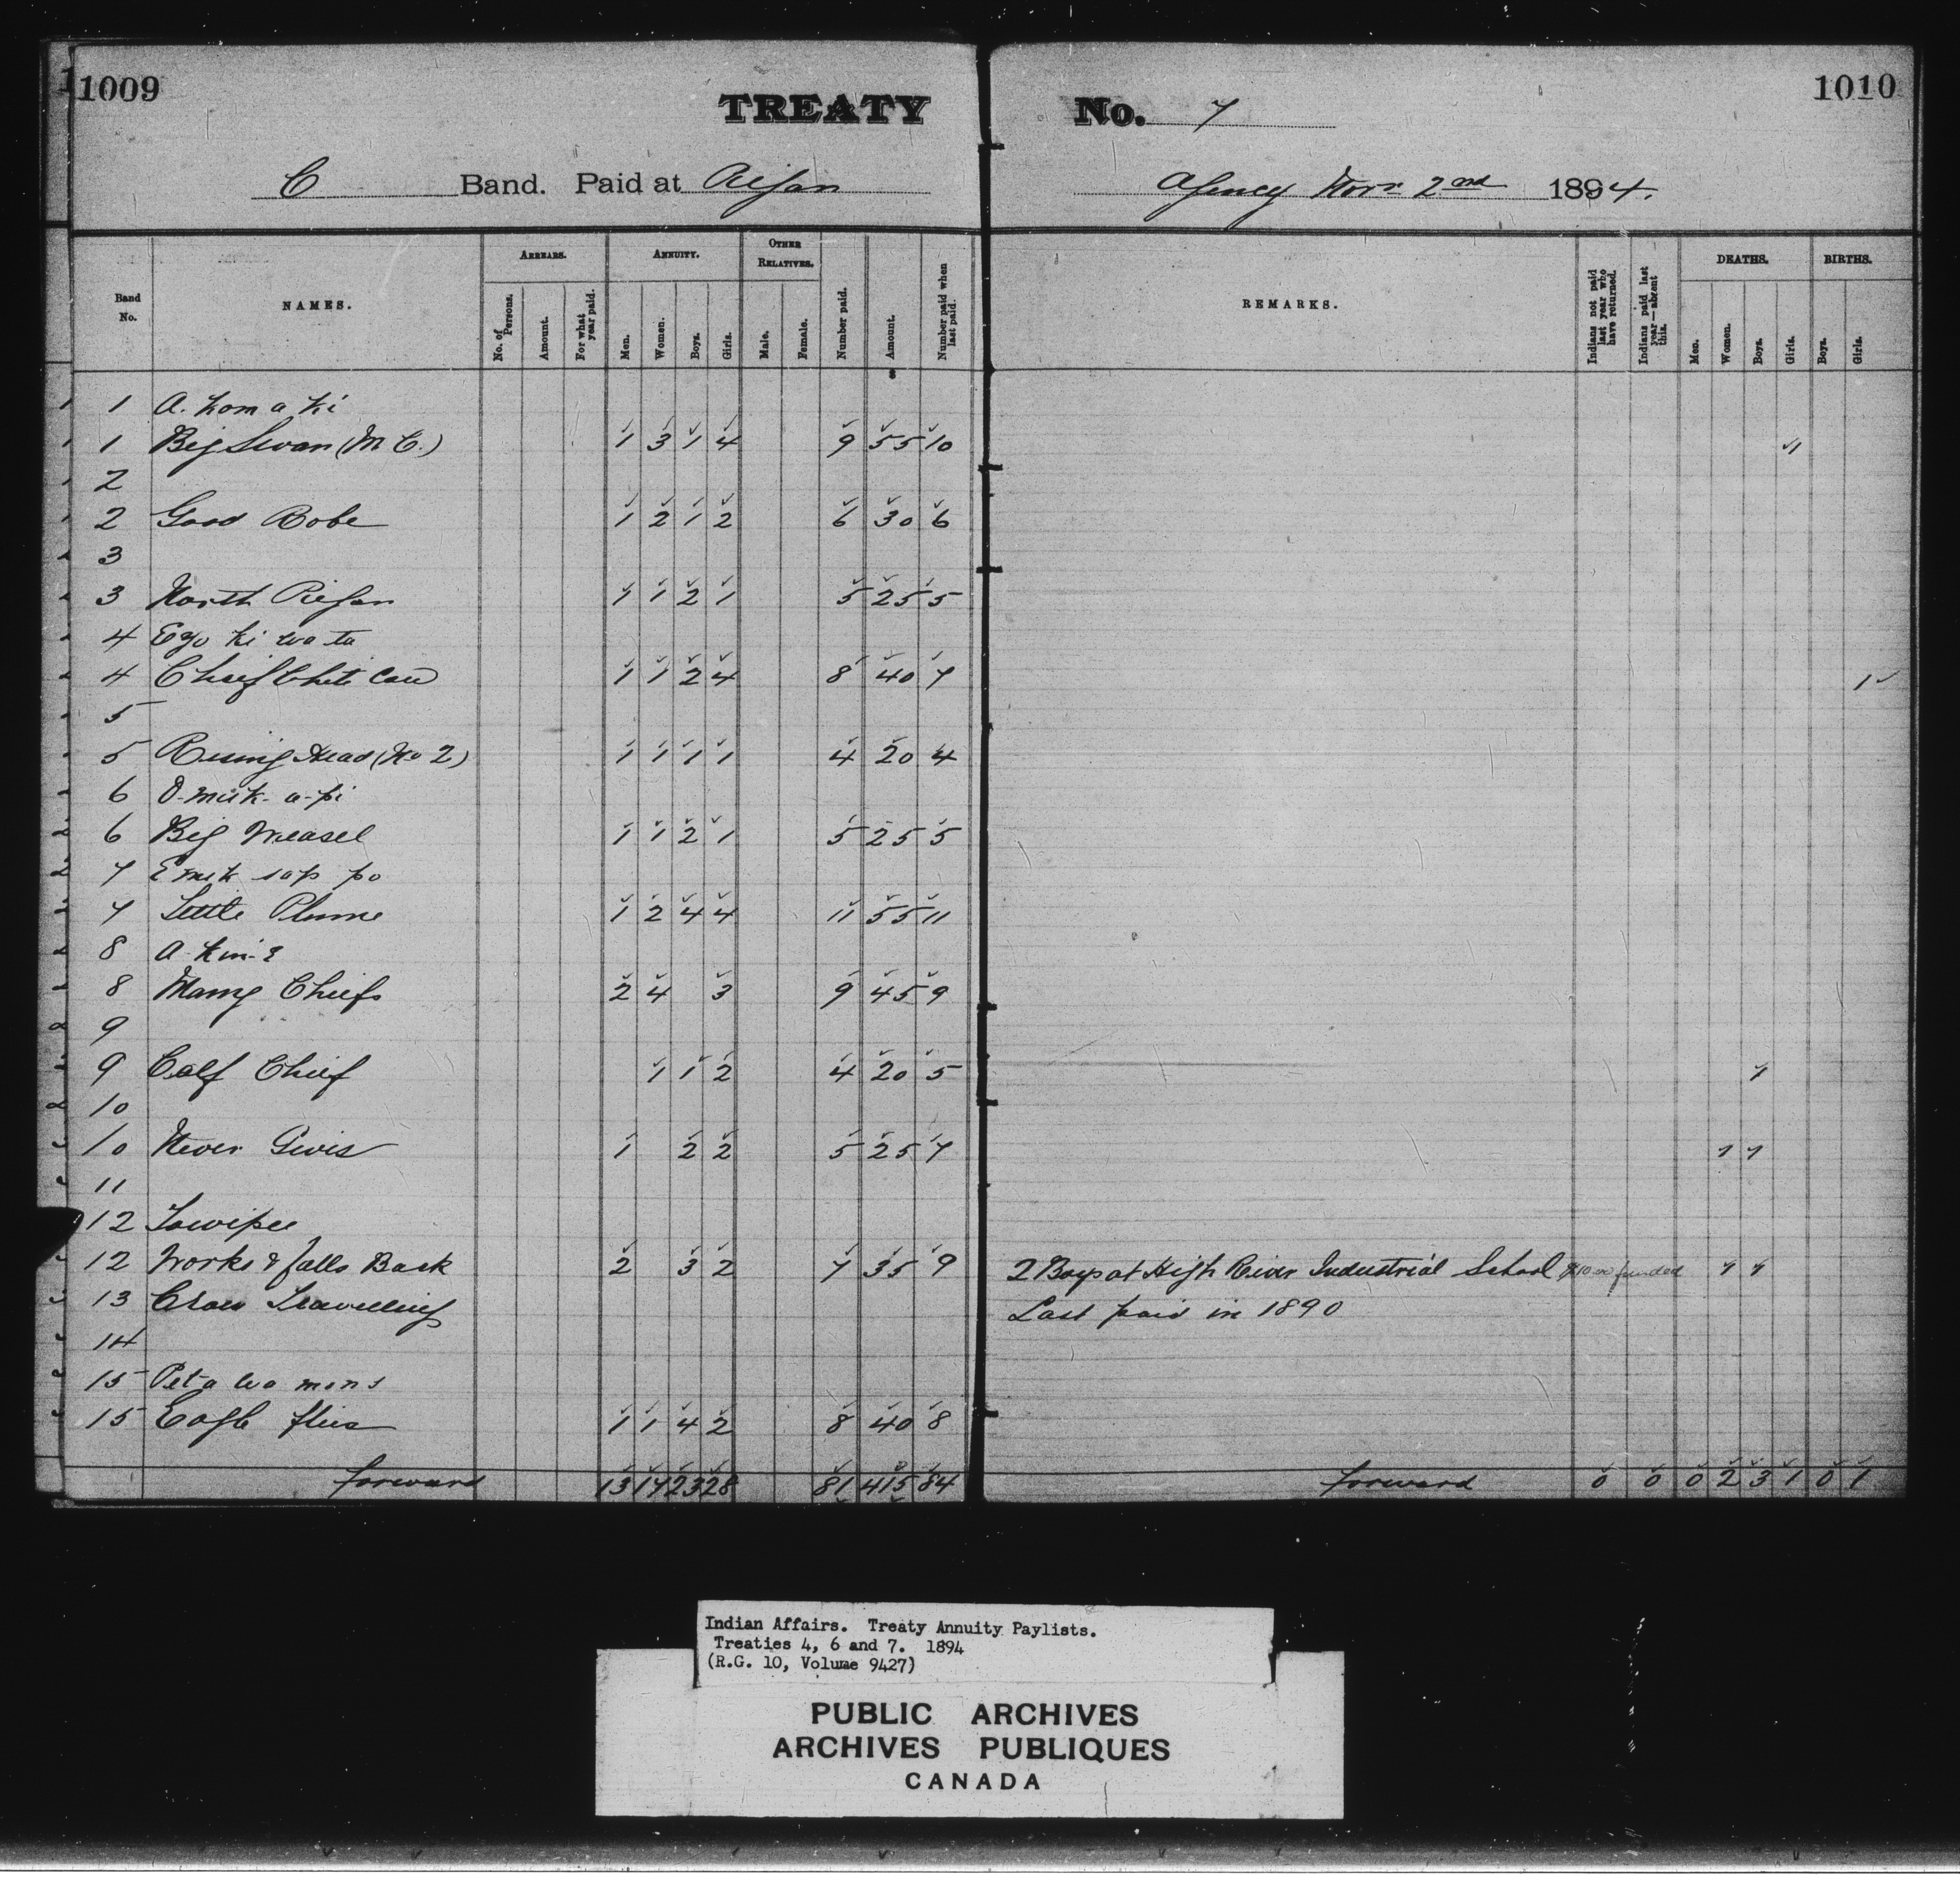 1009
1010
TREATY No. 7
C Band. Paid at Piegan Agency Novr 2nd 1894.
Band No. NAMES. ARREARS. No. of Persons. Amount. For what year paid. ANNUITY. Men. Women. Boys. Girls. OTHER RELATIVES. Male. Female. Number paid. Amount. Number paid when last paid. REMARKS. Indians not paid last year who have returned. Indians paid last year—absent this. DEATHS. Men. Women. Boys. Girls. BIRTHS. Boys. Girls.
1 A. kom a ki
1 Big Swan (M C.) 1 3 1 4 9 55 10 1
2
2 Good Robe 1 2 1 2 6 30 6
3
3 North Piegan 1 1 2 1 5 25 5
4 Ezo ki wa ta
4 Chief White Cow 1 1 2 4 8 40 7 1
5
5 Rising Head (No 2) 1 1 1 1 4 20 4
6 O-muk-a-pi
6 Big Weasel 1 1 2 1 5 25 5
7 Emik sap po
7 Little Plume 1 2 4 4 11 55 11
8 A-kin-
8 Many Chiefs 2 4 3 9 45 9
9
9 Calf Chief 1 1 2 4 20 5 1
10
10 Never Gives 1 2 2 5 25 7 1 1
11
12 Sawipee
12 Works & falls Back 2 3 2 7 35 9 2 Boys at High River Industrial School $10.00 funded 1 1
13 Crow Travelling Last paid in 1890
14
15 Pet-a wa mons
15 Eagle flies 1 1 4 2 8 40 8
forward 13 17 23 28 81 415 84 forward 0 0 0 2 3 1 0 1
Indian Affairs. Treaty Annuity Paylists.
Treaties 4, 6 and 7. 1894
(R.G. 10, Volume 9427)
PUBLIC ARCHIVES
ARCHIVES PUBLIQUES
CANADA